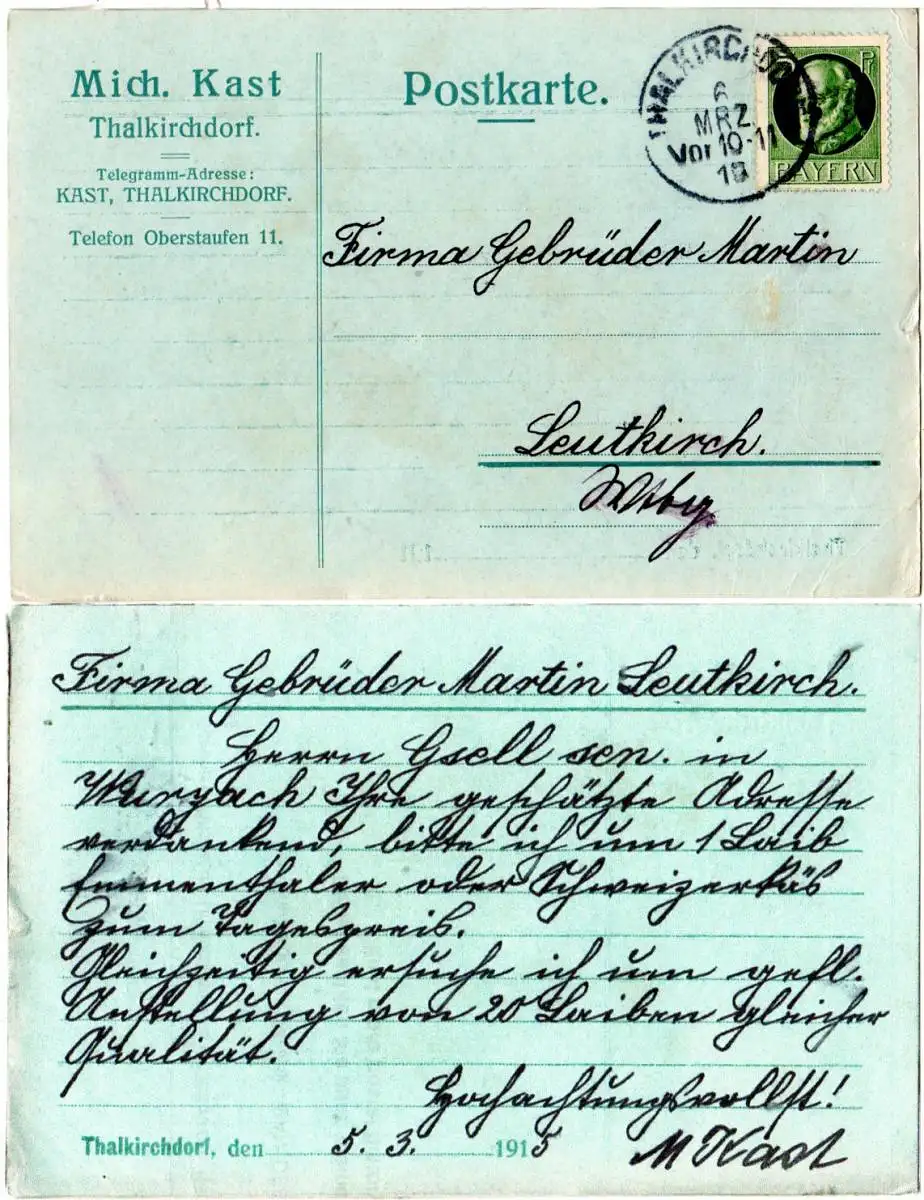 Mich. Kast
Thalkirchdorf.
Telegramm-Adresse:
KAST, THALKIRCHDORF.
Telefon Oberstaufen 11.
Postkarte.
6
MRZ.
Vor 10-11
BAYERN
Firma Gebrüder Martin
Leutkirch.
Wtbg.
Firma Gebrüder Martin Leutkirch.
Herrn Gsell sen. in
Wurzach Ihre geschätzte Adresse
verdankend, bitte ich um 1 Laib
Emmenthaler oder Schweizerkäs
zum Tagespreis.
Gleichzeitig ersuche ich um gefl.
Anstellung von 20 Laiben gleicher
Qualität.
Hochachtungsvollst!
Thalkirchdorf, den 5. 3. 1915
M Kast